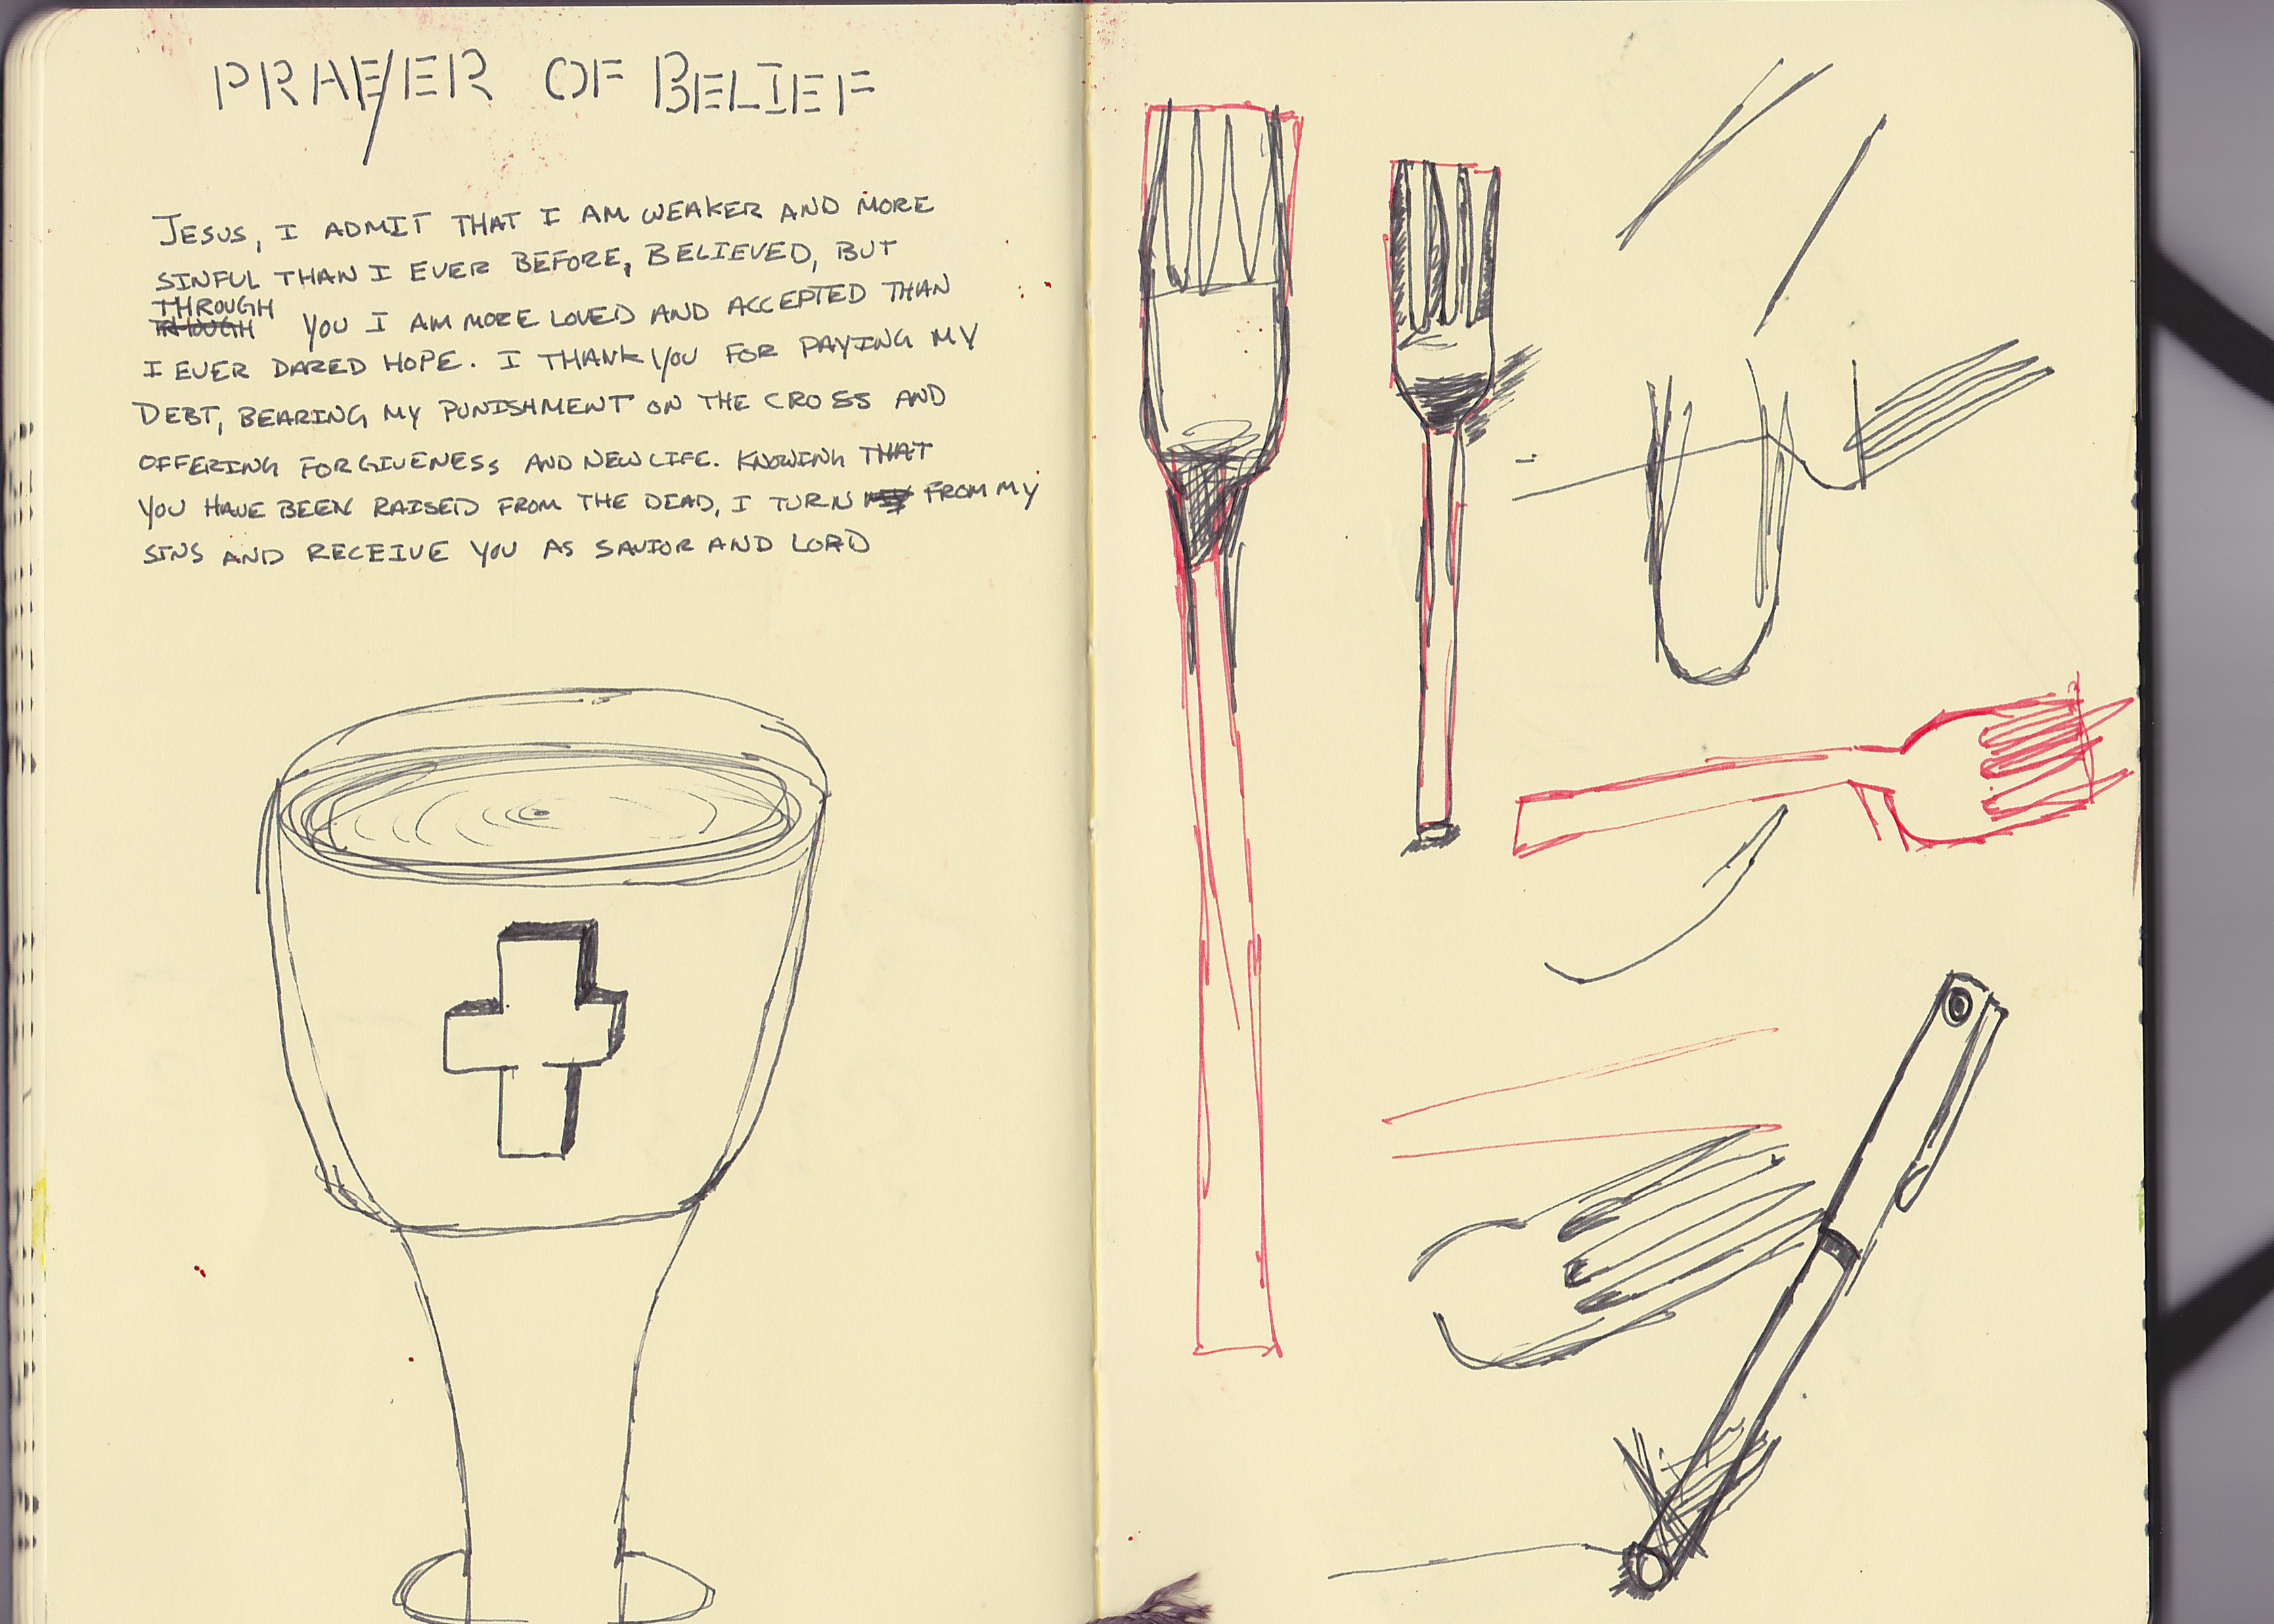 PRAYER OF BELIEF
JESUS, I ADMIT THAT I AM WEAKER AND MORE
SINFUL THAN I EVER BEFORE, BELIEVED, BUT
THROUGH
YOU I AM MORE LOVED AND ACCEPTED THAN
I EVER DARED HOPE. I THANK YOU FOR PAYING MY
DEBT, BEARING MY PUNISHMENT ON THE CROSS AND
OFFERING FORGIVENESS AND NEW LIFE. KNOWING THAT
YOU HAVE BEEN RAISED FROM THE DEAD, I TURN FROM MY
SINS AND RECEIVE YOU AS SAVIOR AND LORD